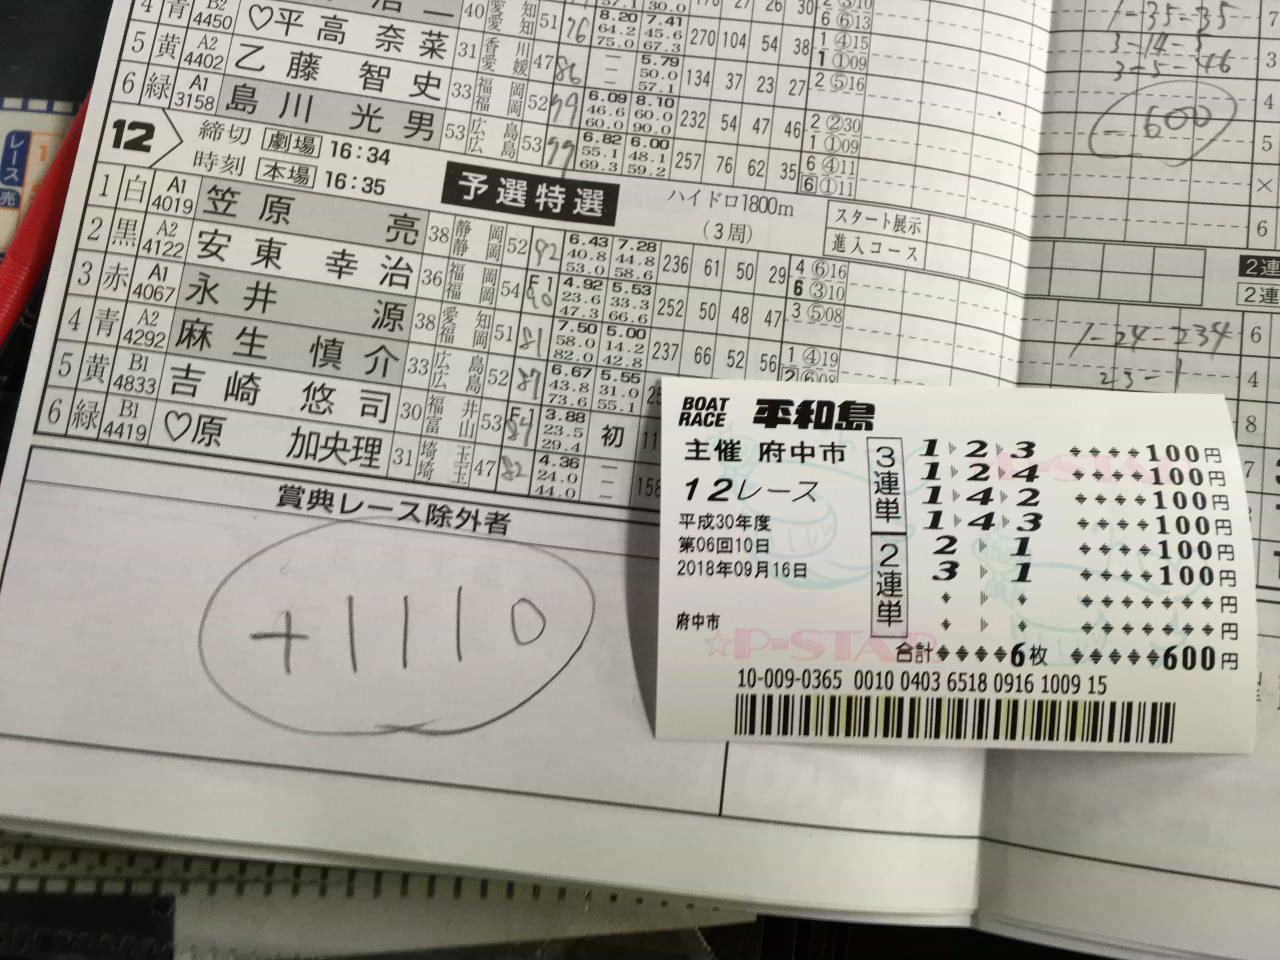 4 青 B2 4450 ♡平高奈菜 31 香川 愛媛 47 76 8.20 64.2 75.0 7.41 45.6 67.3 270 104 54 38 1④15 1①09
5 黄 A2 4402 乙藤智史 33 福岡 福岡 52 86 — — 5.79 50.0 57.1 134 37 23 27 2⑤16
6 緑 A1 3158 島川光男 53 広島 広島 53 99 6.09 46.6 60.0 8.10 60.0 90.0 232 54 47 46 2②30 1①09
99 6.82 55.1 69.3 6.00 48.1 59.2 257 76 62 35 6④11 6①11
12 締切時刻 劇場 16:34 本場 16:35
予選特選
ハイドロ1800m
(3周)
スタート展示
進入コース
1 白 A1 4019 笠原亮 38 静岡 静岡 52 92 6.43 40.8 53.0 7.28 44.8 58.6 236 61 50 29 4⑥16 6③10
2 黒 A2 4122 安東幸治 36 福岡 福岡 54 F1 90 4.92 23.6 47.3 5.53 33.3 66.6 252 50 48 47 3⑤08
3 赤 A1 4067 永井源 38 愛知 福岡 51 81 7.50 58.0 82.0 5.00 14.2 42.8 237 66 52 56 1④19 2⑥08
4 青 A2 4292 麻生慎介 33 広島 広島 52 87 6.67 43.8 73.6 5.55 31.0 55.1
5 黄 B1 4833 吉崎悠司 30 福井 富山 53 F1 84 3.88 23.5 29.4 初 11
6 緑 B1 4419 ♡原加央理 31 埼玉 埼玉 47 82 4.36 24.0 44.0 — — 158
賞典レース除外者
+1110
1-35-35
3-14-
3-5-46
-600
1-24-234
23-1
2連
2連
BOAT RACE 平和島
主催 府中市
12レース
平成30年度
第06回10日
2018年09月16日
府中市
3連単
1 2 3 100円
1 2 4 100円
1 4 2 100円
1 4 3 100円
2連単
2 1 100円
3 1 100円
円
円
合計 6枚 600円
☆P-STAR
10-009-0365 0010 0403 6518 0916 1009 15